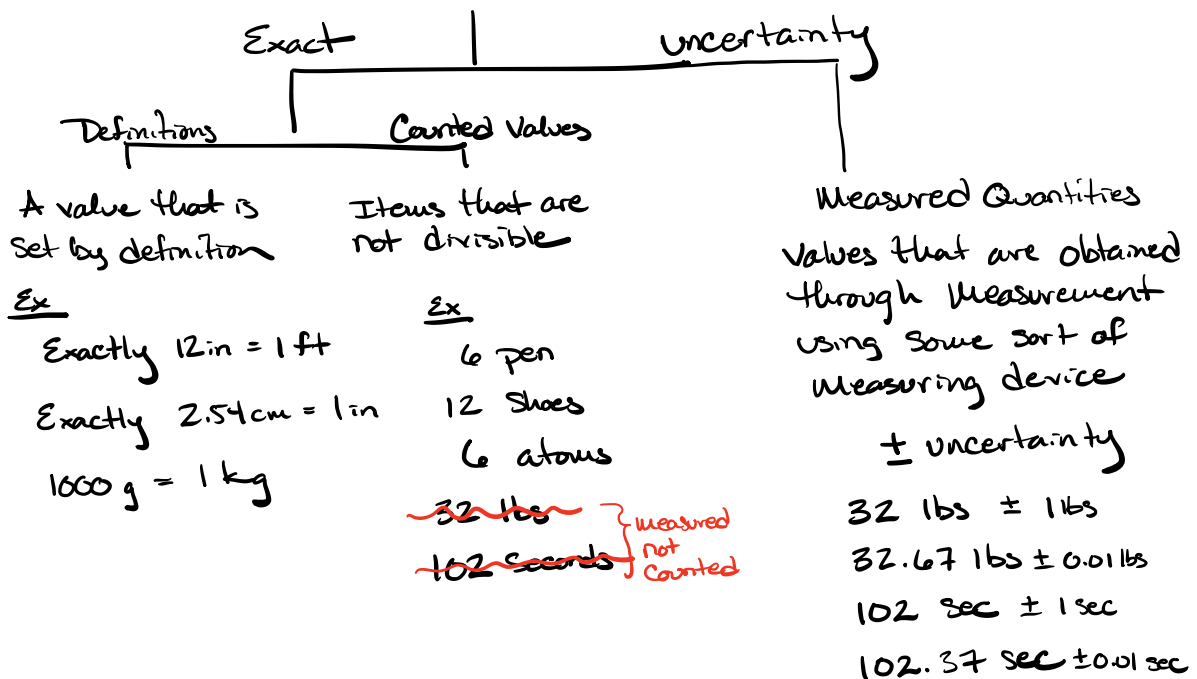 Exact
uncertainty
Definitions
Counted Values
A value that is
set by definition
Ex
Exactly 12in = 1 ft
Exactly 2.54cm = 1in
1000 g = 1 kg
Items that are
not divisible
Ex
6 pen
12 Shoes
6 atoms
32 lbs
102 Seconds
measured
not
Counted
Measured Quantities
Values that are obtained
through Measurement
using some sort of
Measuring device
± uncertainty
32 lbs ± 1 lbs
32.67 lbs ± 0.01 lbs
102 sec ± 1 sec
102.37 sec ±0.01 sec